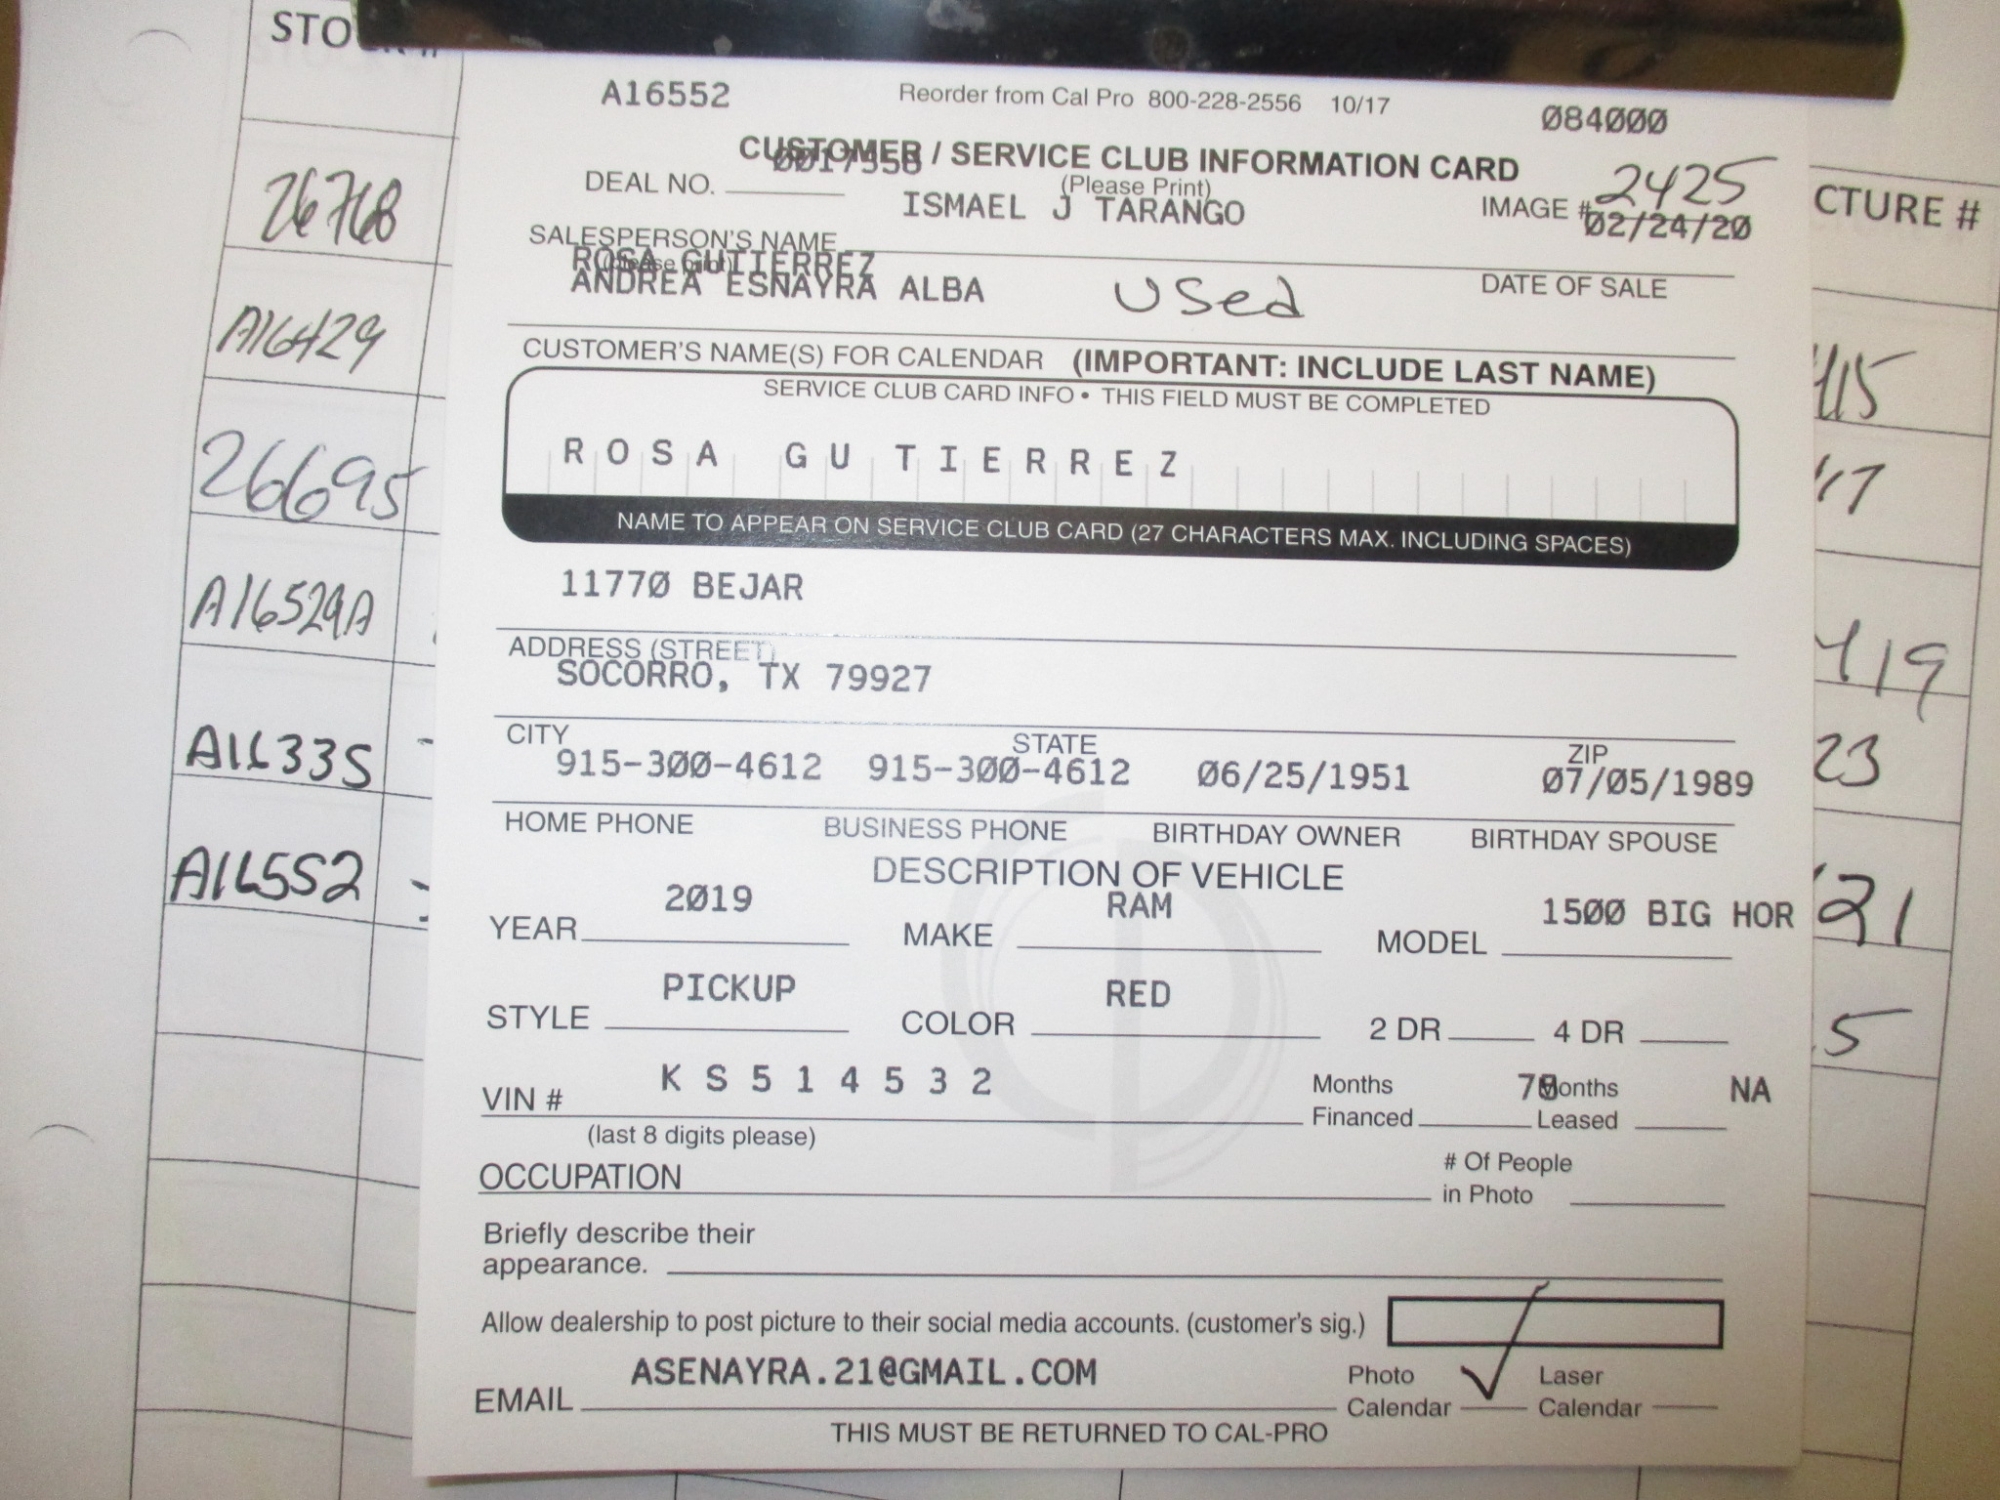 A16552 Reorder from Cal Pro 800-228-2556 10/17 084000
CUSTOMER / SERVICE CLUB INFORMATION CARD
(Please Print)
DEAL NO. ISMAEL J TARANGO IMAGE # 2425
02/24/20
SALESPERSON'S NAME
ROSA GUTIERREZ
ANDREA ESNAYRA ALBA Used DATE OF SALE
CUSTOMER'S NAME(S) FOR CALENDAR (IMPORTANT: INCLUDE LAST NAME)
SERVICE CLUB CARD INFO • THIS FIELD MUST BE COMPLETED
ROSA GUTIERREZ
NAME TO APPEAR ON SERVICE CLUB CARD (27 CHARACTERS MAX. INCLUDING SPACES)
11770 BEJAR
ADDRESS (STREET)
SOCORRO, TX 79927
CITY STATE ZIP
915-300-4612 915-300-4612 06/25/1951 07/05/1989
HOME PHONE BUSINESS PHONE BIRTHDAY OWNER BIRTHDAY SPOUSE
DESCRIPTION OF VEHICLE
YEAR 2019 MAKE RAM MODEL 1500 BIG HOR
STYLE PICKUP COLOR RED 2 DR 4 DR
VIN # KS514532 Months Financed Months Leased NA
(last 8 digits please)
OCCUPATION # Of People in Photo
Briefly describe their
appearance.
Allow dealership to post picture to their social media accounts. (customer's sig.)
EMAIL ASENAYRA.21@GMAIL.COM Photo Calendar Laser Calendar
THIS MUST BE RETURNED TO CAL-PRO
26768
A16429
26695
A16529A
A16335
A16552
CTURE #